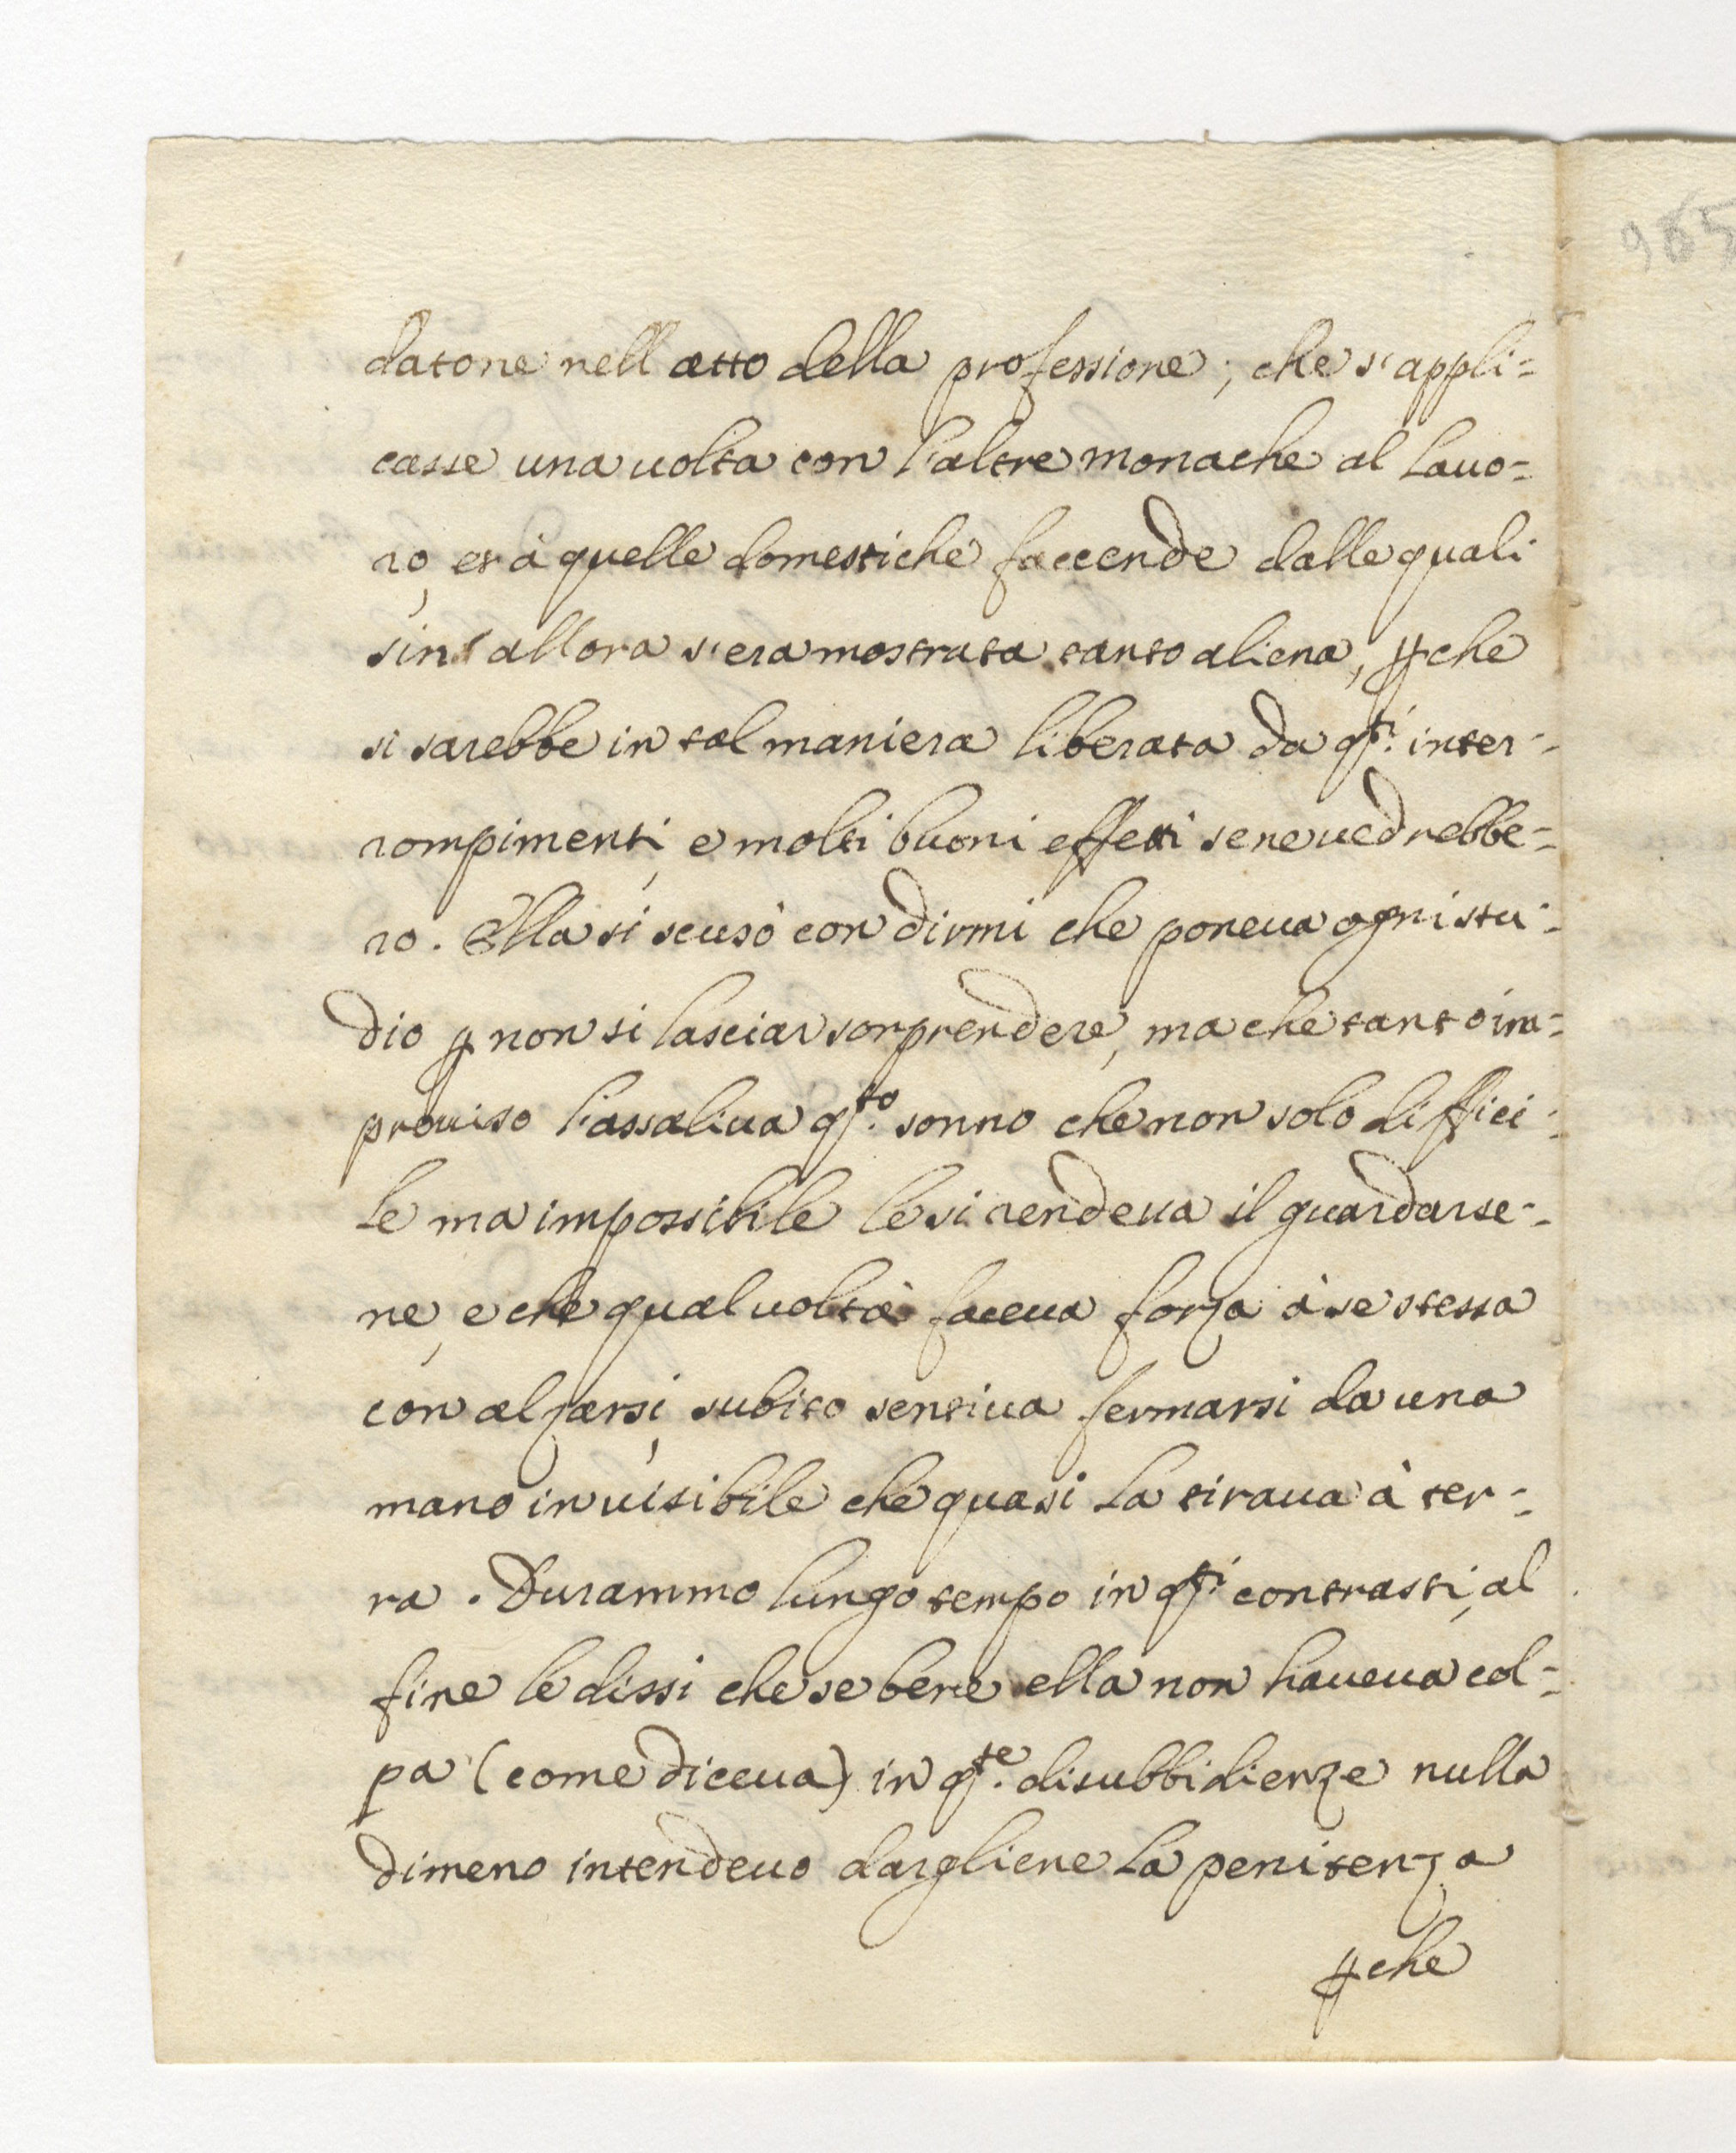 datone nell atto della professione; che s'appli=
casse una uolta con l'altre monache al lauo=
ro, et à quelle domestiche faccende dalle quali
sin' allora s'era mostrata tanto aliena, ꝑche
si sarebbe in tal maniera liberata da q.ti inter=
rompimenti, e molti buoni effetti se ne uedrebbe=
ro. Ella si scusò con dirmi che poneua ogni stu=
dio ꝑ non si lasciar sorprendere, ma che tanto im=
prouiso l'assaliua q.to sonno che non solo diffici=
le ma impossibile le si rendeua il guardarse=
ne, e che qual uolta faceua forza à se stessa
con alzarsi, subito sentiua fermarsi da una
mano inuisibile che quasi la tiraua à ter=
ra. Durammo lungo tempo in q.ti contrasti, al
fine le dissi che se bene ella non haueua col=
pa (come diceua) in q.te disubbidienze nulla
dimeno intendeuo dargliene la penitenza
ꝑche
965